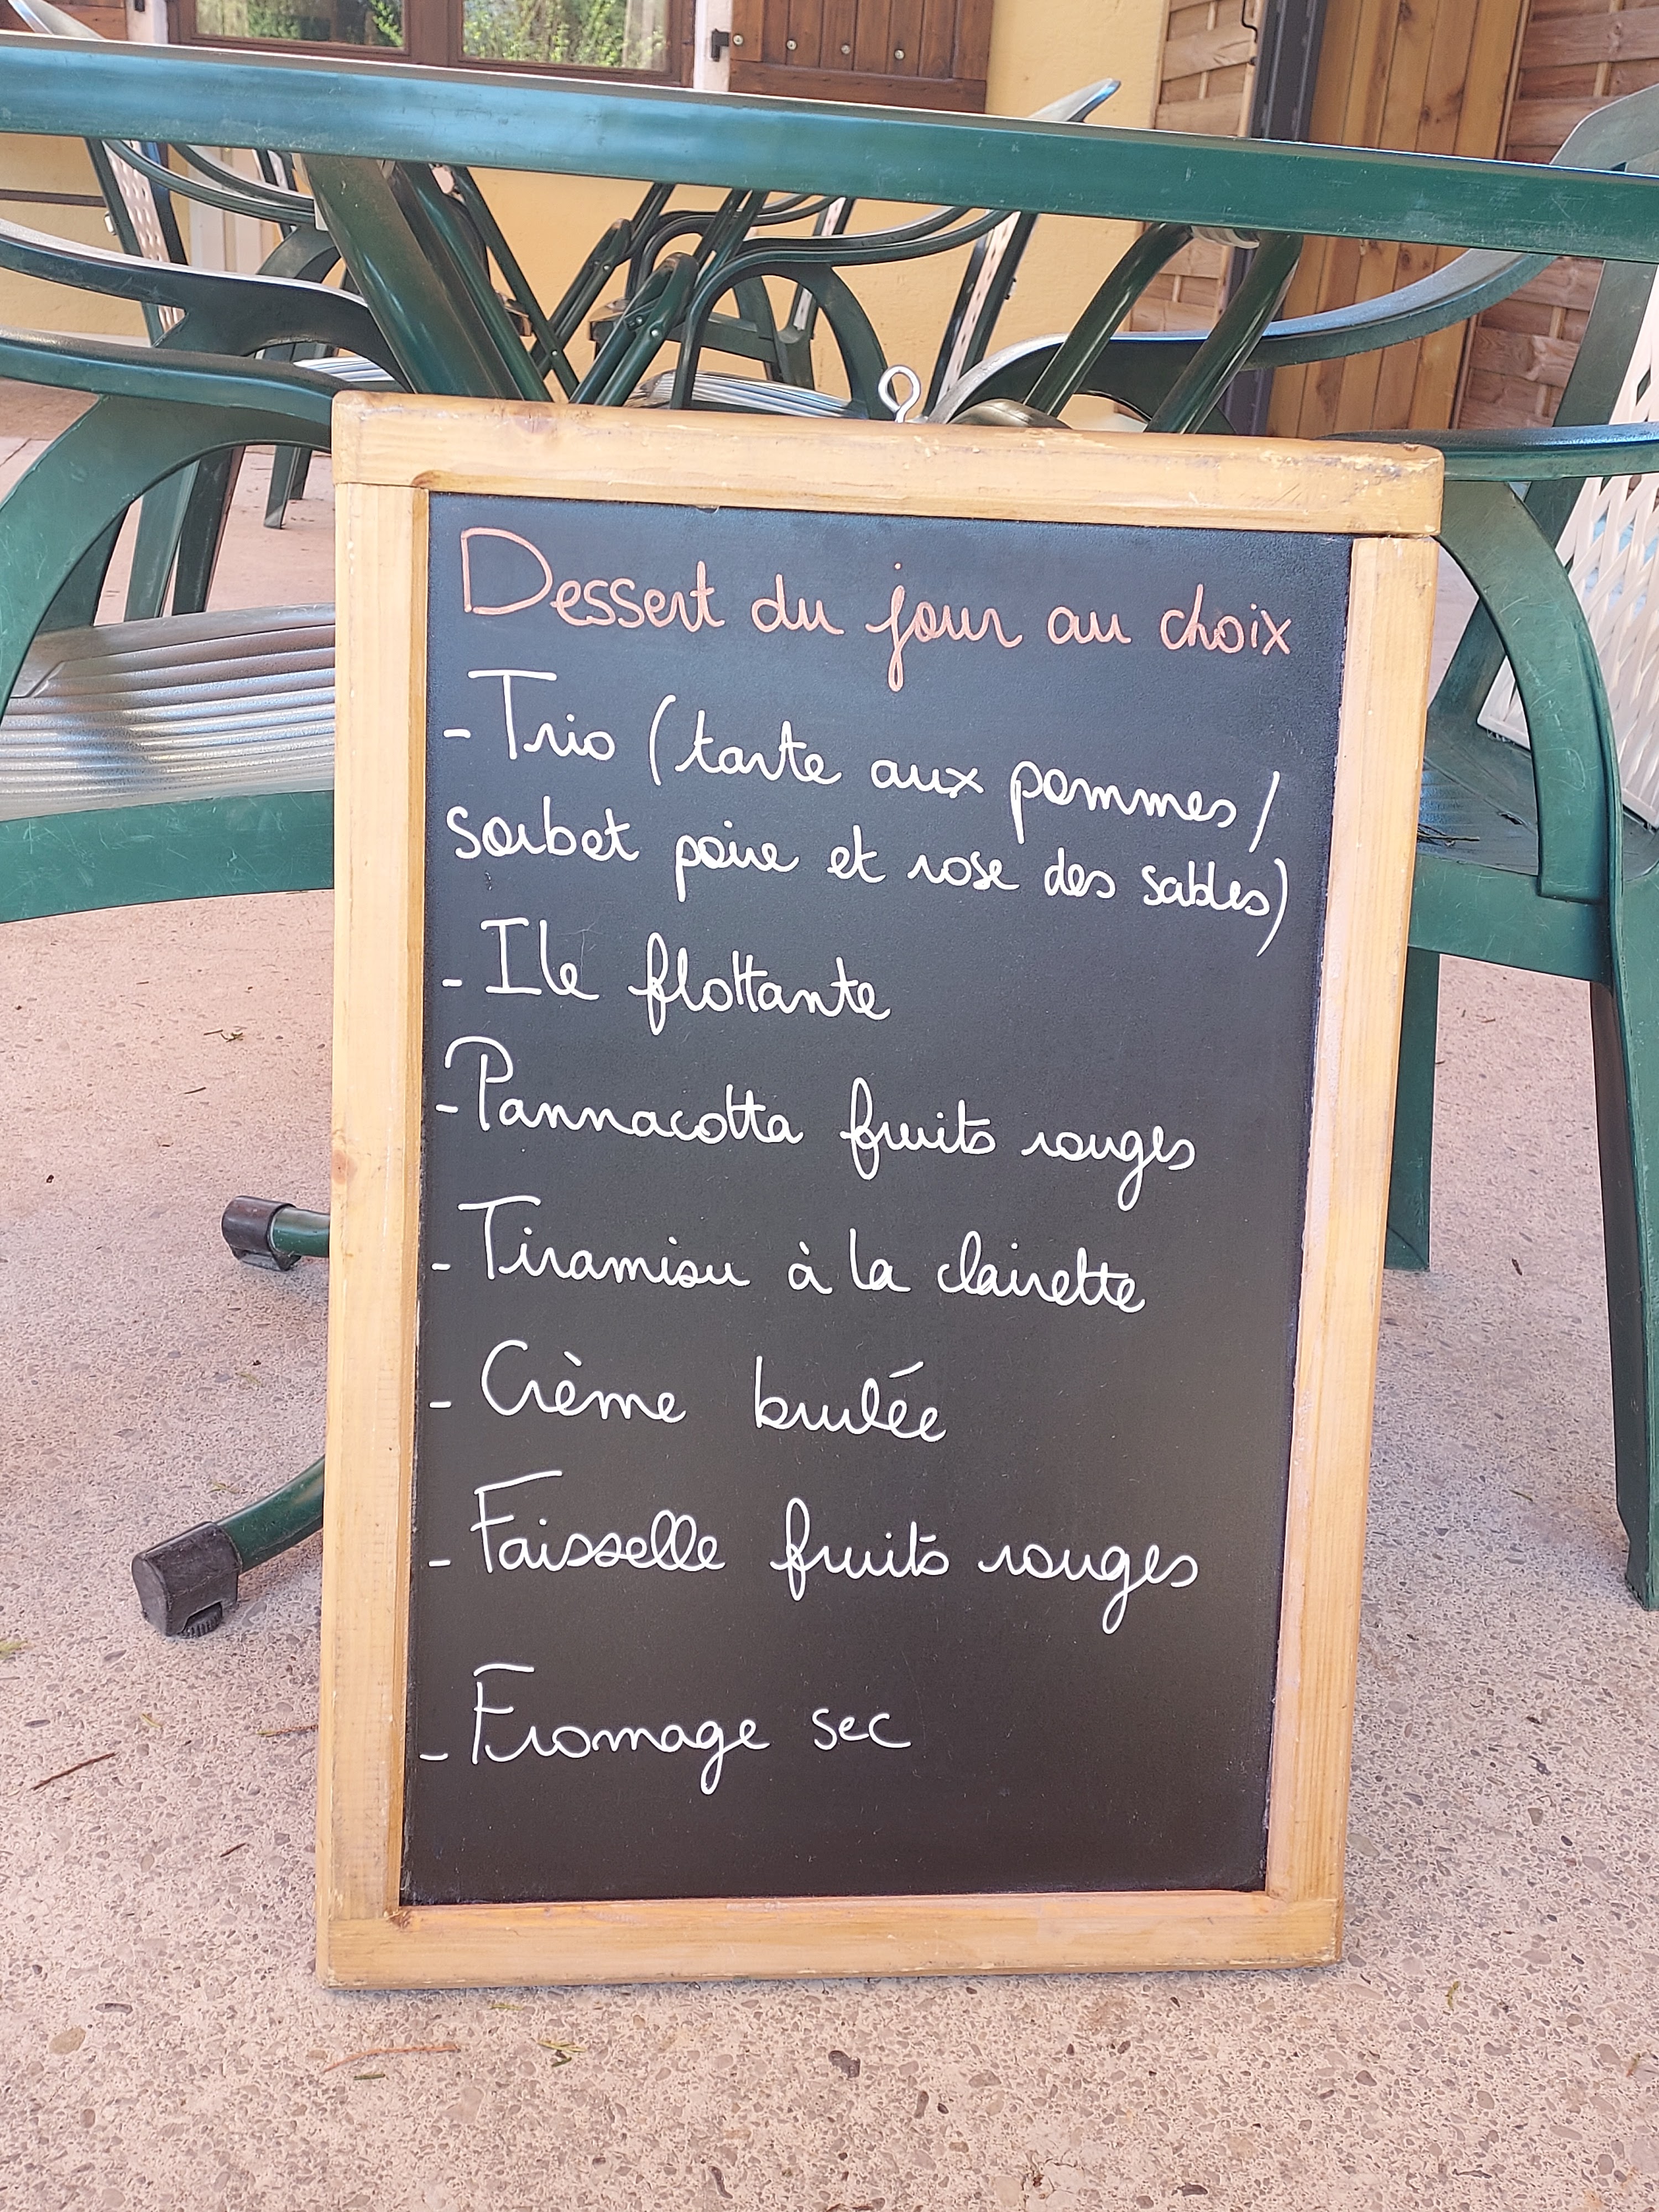 Dessert du jour au choix
- Trio (tarte aux pommes /
sorbet poire et rose des sables)
- Ile flottante
- Pannacotta fruits rouges
- Tiramisu à la clairette
- Crème brulée
- Faisselle fruits rouges
- Fromage sec